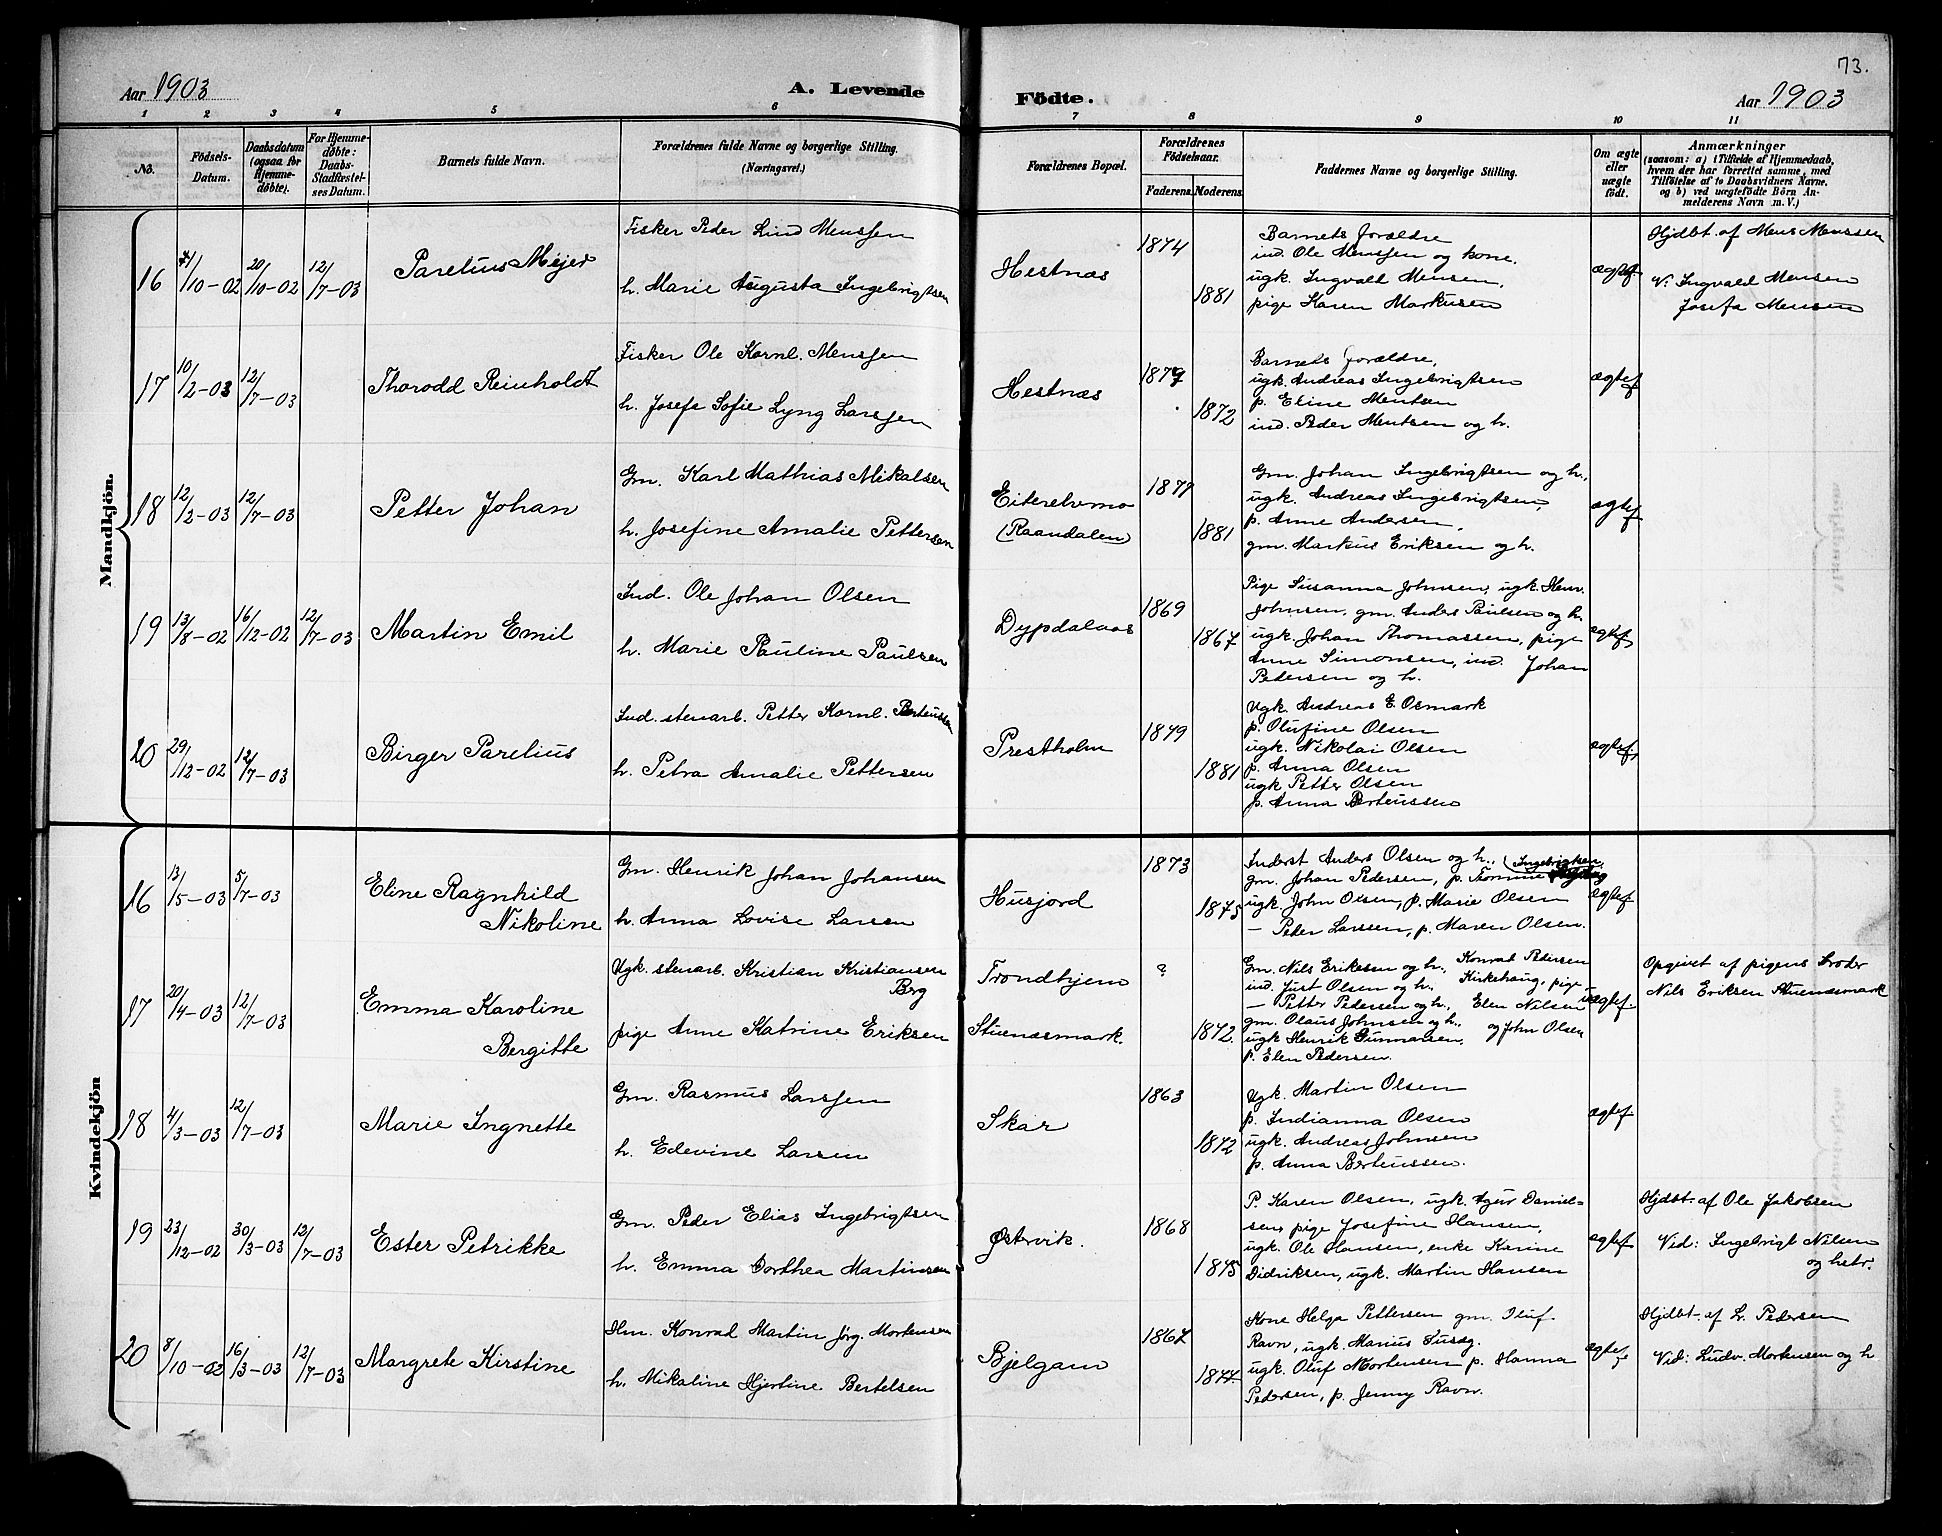 73.
Aar 1903
A. Levende
Födte.
Aar 1903
1 2 3 4 5 6 7 8 9 10 11
No.
Födsels-Datum.
Daabsdatum (ogsaa for Hjemme-døbte).
For Hjemme-døbte: Daabs-Stadfæstel-ses Datum.
Barnets fulde Navn.
Forældrenes fulde Navne og borgerlige Stilling.
(Næringsvei.)
Forældrenes Bopæl.
Forældrenes Födselsaar.
Faderens. Moderens.
Faddernes Navne og borgerlige Stilling.
Om ægte eller uægte födt.
Anmærkninger
(saasom: a) i Tilfælde af Hjemmedaab,
hvem der har forrettet samme, med
Tilföielse af to Daabsvidners Navne,
og b) ved uægtefödte Börn An-
melderens Navn m. V.)
Mandkjön.
16
/10-02
20/10-02
12/7-03
Parelius Mejer
Fisker Peder Lind Menssen
h. Marie Augusta Ingebrigtsen
Hestnæs
1874
1881
Barnets forældre
ind. Ole Menssen og kone.
ugk. Ingvald Mensen,
pige Karen Markusen
ægtef.
Hjdbt. af Mens Menssen
V: Ingvald Mensen
Josefa Mensen
17
10/2-03
12/7-03
Thorodd Reinholdt
Fisker Ole Kornl. Menssen
h. Josefa Sofie Lyng Larssen
Hestnæs
1879
1872
Barnets forældre,
ugk. Andreas Ingebrigtsen
p. Eline Mentsen
ind. Peder Mentsen og h.
ægtef
18
12/2-03
12/7-03
Petter Johan
Gm. Karl Mathias Mikalsen
h. Josefine Amalie Pettersen
Eiterelvmo
(Raandalen)
1877
1881
Gm. Johan Ingebrigtsen og h.,
ugk. Andreas Ingebrigtsen,
p. Anne Andersen,
gm. Markus Eriksen og h.
ægtef
19
13/8-02
16/12-02
12/7-03
Martin Emil
Ind. Ole Johan Olsen
h. Marie Pauline Paulsen
Dypdalaas
1869
1867
Pige Susanna Johnsen, ugk. Henr.
Johnsen, gm. Anders Paulsen og h.
ugk. Johan Thomassen, pige
Anne Simonsen, ind. Johan
Pedersen og h.
ægtef
20
29/12-02
12/7-03
Birger Parelius
Ind. stenarb. Petter Kornl. Berteussen
h. Petra Amalie Pettersen
Prestholm
1879
1881
Ugk. Andreas E. Osmark
p. Olufine Olsen
ugk. Nikolai Olsen
p. Anna Olsen
ugk. Petter Olsen
p. Anna Berteussen
ægtef
Kvindekjön
16
13/5-03
5/7-03
Eline Ragnhild
Nikoline
Gm. Henrik Johan Johansen
h. Anna Lovise Larsen
Husjord
1873
1875
Inderst Anders Olsen og h., Ingebrigtsen,
gm. Johan Pedersen, p. Tomine
ugk. John Olsen, p. Marie Olsen
— Peder Larssen, p. Maren Olsen.
ægtef
17
20/4-03
12/7-03
Emma Karoline
Bergitte
Ugk. stenarb. Kristian Kristiansen
Berg
pige Anne Katrine Eriksen
Trondhjem
Stuenæsmark.
?
1872.
Gm. Nils Eriksen og h., Konrad Pedersen
ind. Just Olsen og h., Kirkehaug, pige
— Petter Pedersen og h., Elen Nilsen
gm. Olaus Johnsen og h., og John Olsen
ugk Henrik Gunnarsen,
p. Elen Pedersen.
uægtef
Opgivet af pigens broder
Nils Eriksen Stuenæsmark
18
4/3-03
12/7-03
Marie Ingnette
Gm. Rasmus Larssen
h. Edevine Larsen
Skar
1863
1872
Ugk. Martin Olsen
p. Indianna Olsen
ugk. Andreas Johnsen
p. Anna Berteussen.
ægtef
19
23/12-02
30/3-03
12/7-03
Ester Petrikke
Gm. Peder Elias Ingebrigtsen
h. Emma Dorthea Martinsen
Østervik.
1868
1875
P. Karen Olsen, ugk. Agur Daniel-
sen, pige Josefine Hansen,
ugk. Ole Hansen, enke Karine
Didriksen, ugk. Martin Hansen
ægtef
Hjdbt. af Ole Jakobsen
Vid: Ingebrigt Nilsen
og hstr.
20
8/10-02
16/3-03
12/7-03
Margrete Kirstine
Hm. Konrad Martin Jörg. Mortensen
h. Mikaline Hjertine Bertelsen
Bjelgam
1867
1877.
Kone Helga Pettersen gm. Oluf
Ravn, ugk. Marius Susæg.
ugk. Oluf Mortensen p. Hanna
Pedersen, p. Jenny Ravn.
ægtef
Hjdbt. af L. Pedersen
Vid: Ludv. Mortensen og h